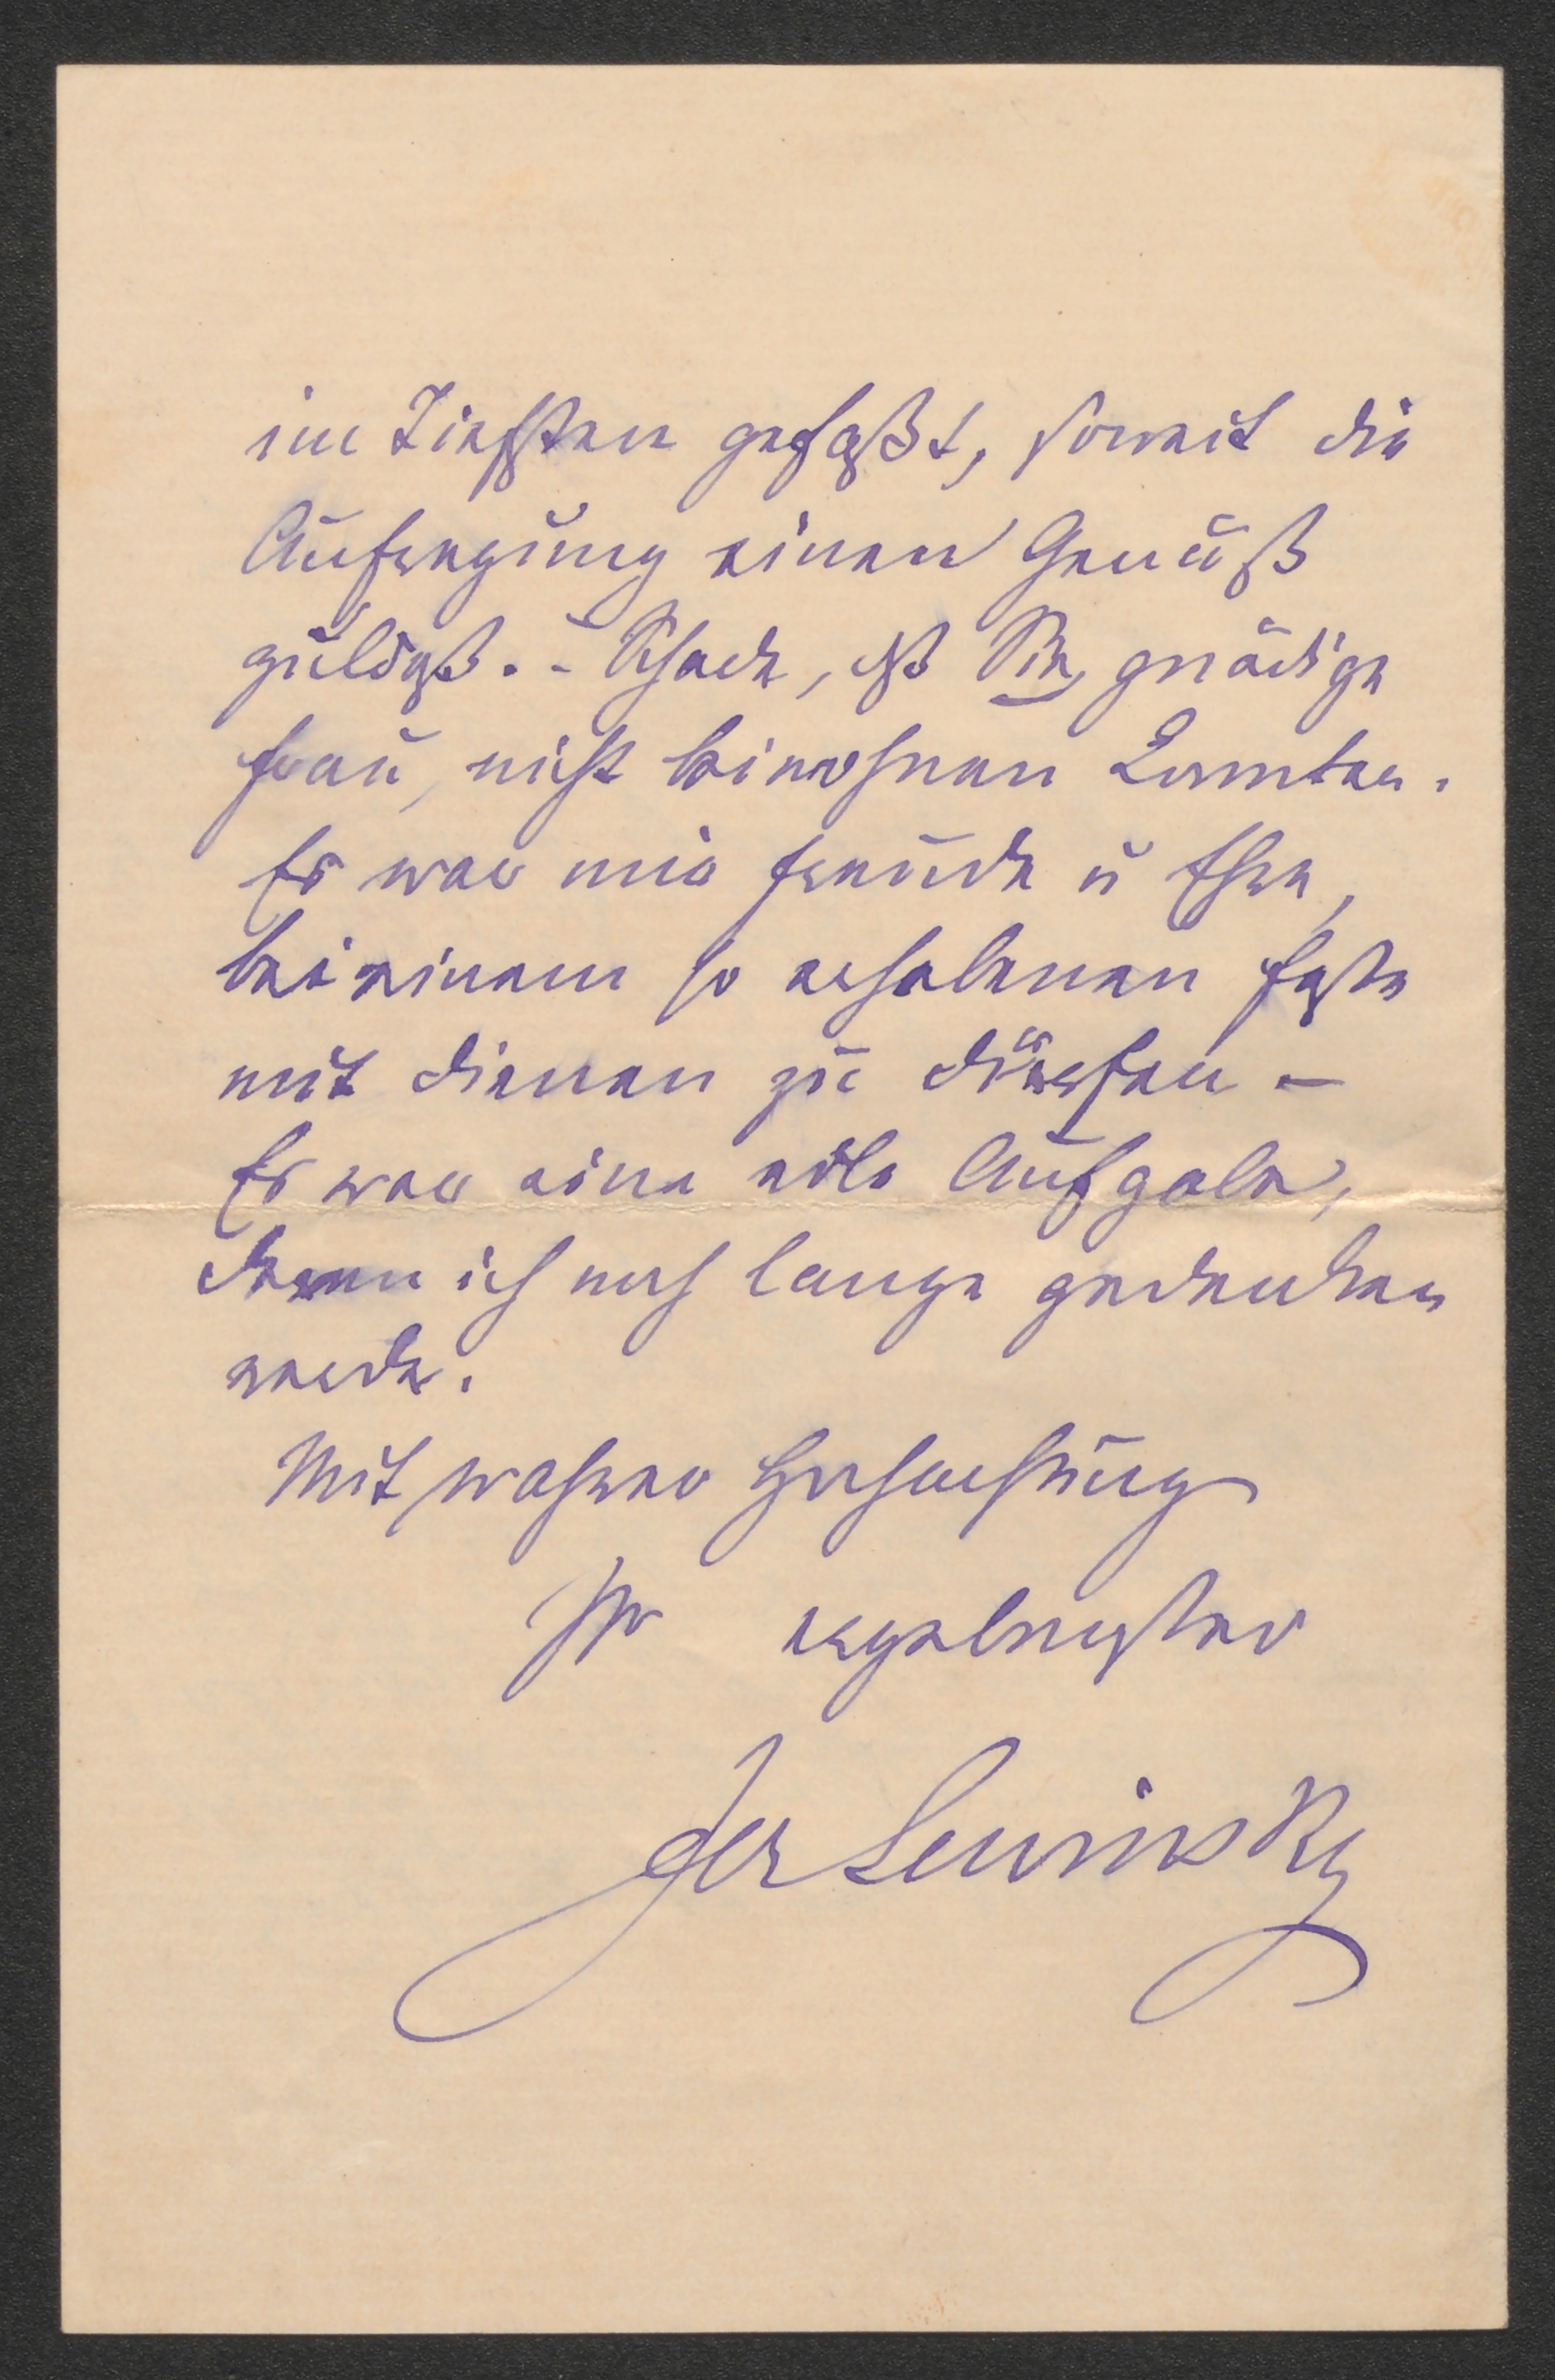 im Tiefsten gefaßt, soweit die
Aufregung einen Genuß
zuläßt. - Schade, daß Sie, gnädige
Frau, nicht beiwohnen konnten.
Es war mir Freude u Ehre,
bei einem so erhabenen Feste
mit dienen zu dürfen -
Es war eine edle Aufgabe,
deren ich noch lange gedenken
werde.
Mit wahrer Hochachtung
Ihr ergebenster
Jos Lewinsky